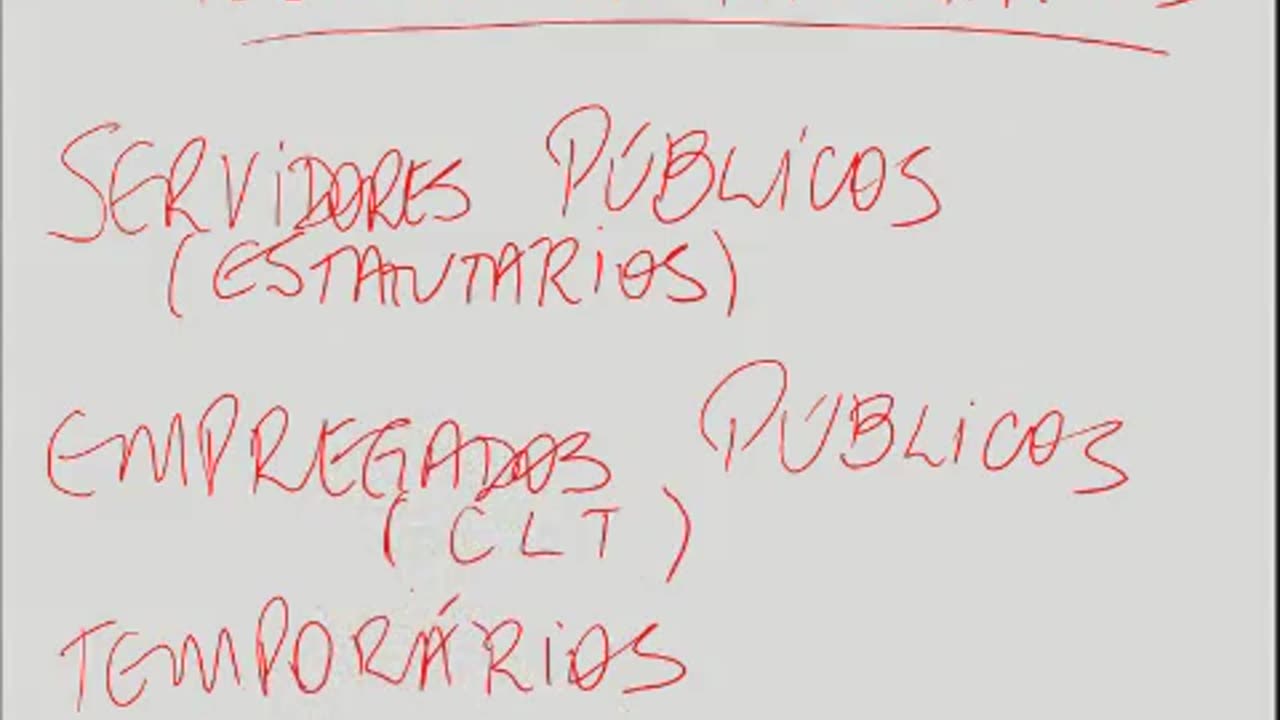 SERVIDORES PÚBLICOS
(ESTATUTARIOS)
EMPREGADOS PÚBLICOS
(CLT)
TEMPORÁRIOS